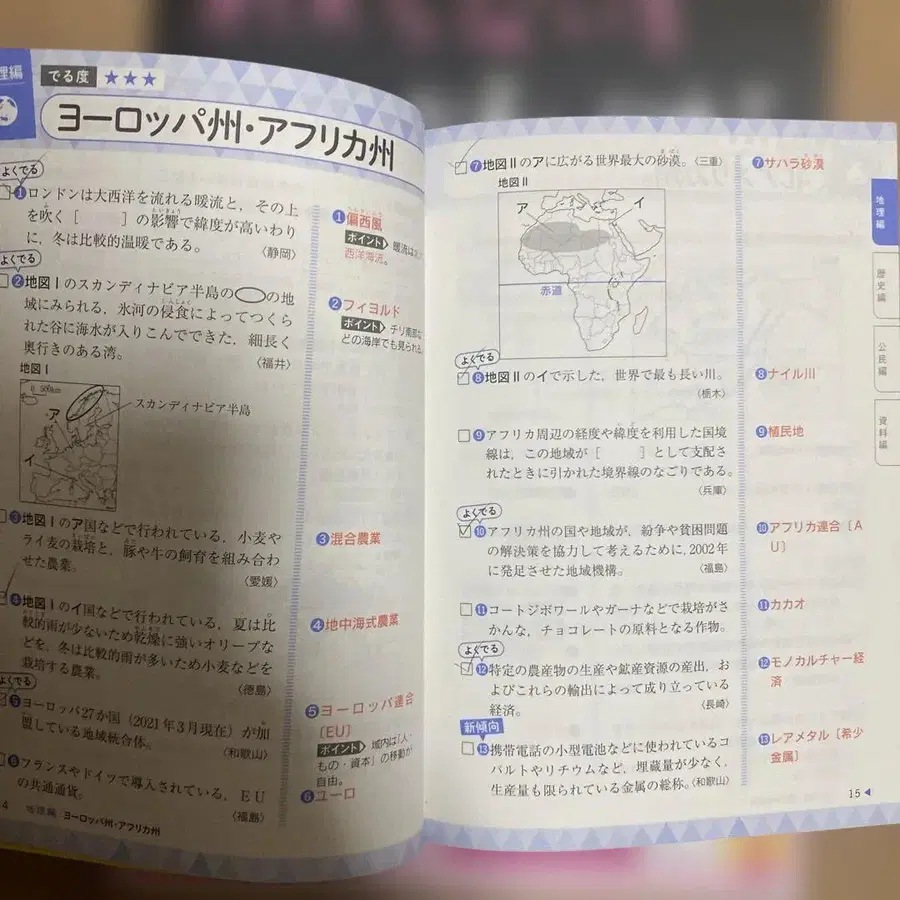 理編
でる度 ★★★
ヨーロッパ州・アフリカ州
よくでる
❶ロンドンは大西洋を流れる暖流と，その上
を吹く［　　］の影響で緯度が高いわり
に，冬は比較的温暖である。〈静岡〉
❶偏西風
ポイント 暖流は
西洋海流。
よくでる
❷地図Ⅰのスカンディナビア半島の の地
域にみられる，氷河の侵食によってつくら
れた谷に海水が入りこんでできた，細長く
奥行きのある湾。〈福井〉
❷フィヨルド
ポイント チリ南部な
どの海岸でも見られる。
地図Ⅰ
0 500km
スカンディナビア半島
ア
イ
❸地図Ⅰのア国などで行われている，小麦や
ライ麦の栽培と，豚や牛の飼育を組み合わ
せた農業。〈愛媛〉
❸混合農業
❹地図Ⅰのイ国などで行われている，夏は比
較的雨が少ないため乾燥に強いオリーブな
どを，冬は比較的雨が多いため小麦などを
栽培する農業。〈徳島〉
❹地中海式農業
よくでる
❺ヨーロッパ27か国（2021年3月現在）が加
盟している地域統合体。〈和歌山〉
❺ヨーロッパ連合
〔EU〕
ポイント 域内は「人・
もの・資本」の移動が
自由。
❻フランスやドイツで導入されている，ＥＵ
の共通通貨。〈福島〉
❻ユーロ
4 地理編 ヨーロッパ州・アフリカ州
❼地図Ⅱのアに広がる世界最大の砂漠。〈三重〉
❼サハラ砂漠
地図Ⅱ
ア
イ
赤道
よくでる
❽地図Ⅱのイで示した，世界で最も長い川。
〈栃木〉
❽ナイル川
❾アフリカ周辺の経度や緯度を利用した国境
線は，この地域が［　　］として支配さ
れたときに引かれた境界線のなごりである。
〈兵庫〉
❾植民地
よくでる
❿アフリカ州の国や地域が，紛争や貧困問題
の解決策を協力して考えるために，2002年
に発足させた地域機構。〈福島〉
❿アフリカ連合〔A
U〕
⓫コートジボワールやガーナなどで栽培がさ
かんな，チョコレートの原料となる作物。
⓫カカオ
よくでる
⓬特定の農産物の生産や鉱産資源の産出，お
よびこれらの輸出によって成り立っている
経済。〈長崎〉
⓬モノカルチャー経
済
新傾向
⓭携帯電話の小型電池などに使われているコ
バルトやリチウムなど，埋蔵量が少なく，
生産量も限られている金属の総称。〈和歌山〉
⓭レアメタル〔希少
金属〕
15
地理編
歴史編
公民編
資料編